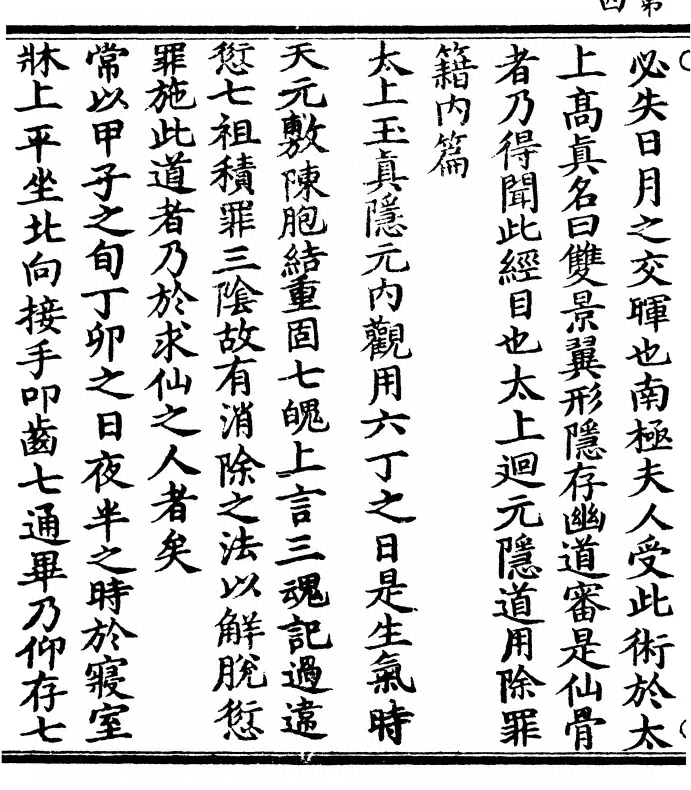 第四
必失日月之交暉也南極夫人受此術於太
上髙真名曰雙景翼形隱存幽道審是仙骨
者乃得聞此經目也太上迴元隱道用除罪
籍内篇
太上玉真隱元内觀用六丁之日是生氣時
天元敷陳胞結重固七魄上言三魂記過遠
愆七祖積罪三陰故有消除之法以解脫愆
罪施此道者乃於求仙之人者矣
常以甲子之旬丁卯之日夜半之時於寢室
牀上平坐北向接手叩齒七通畢乃仰存七